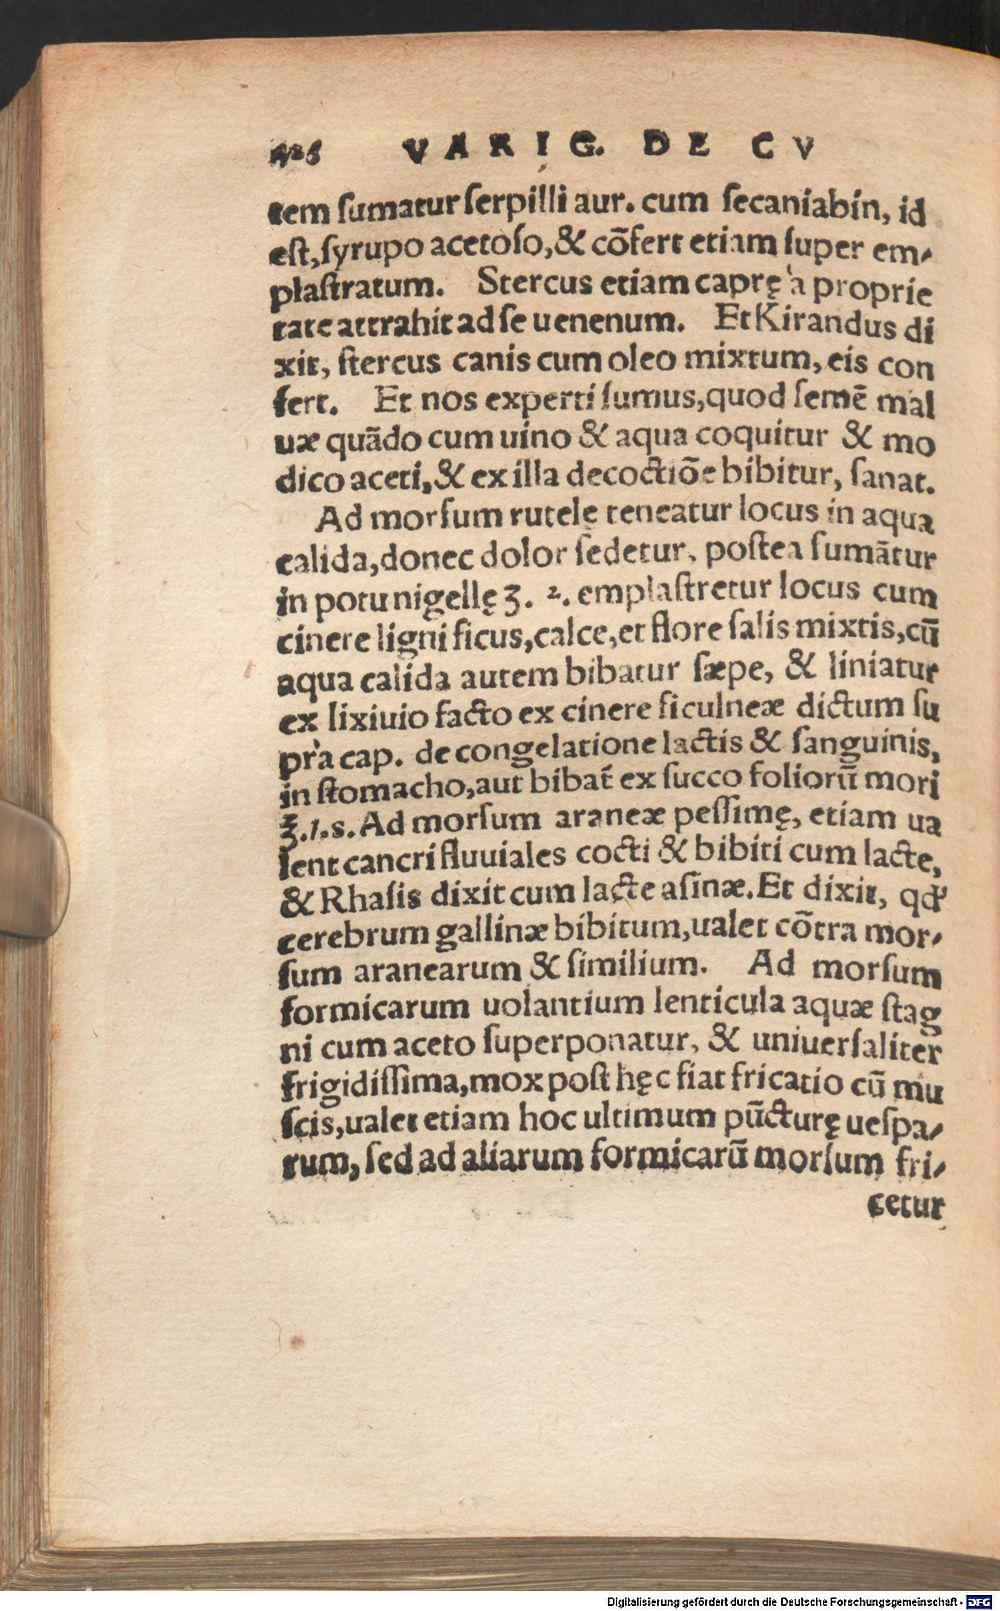 VARIG. DE CV
tem sumatur serpilli aur. cum secaniabin, id
est, syrupo acetoso, & cōfert etiam super em-
plastratum. Stercus etiam caprę à proprie
tate attrahit ad se uenenum. Et Kirandus di
xit, stercus canis cum oleo mixtum, eis con
fert. Et nos experti sumus, quod semē mal
uæ quādo cum uino & aqua coquitur & mo
dico aceti, & ex illa decoctiōe bibitur, sanat.
Ad morsum rutelę teneatur locus in aqua
calida, donec dolor sedetur, postea sumātur
in potu nigellę ʒ. 2. emplastretur locus cum
cinere ligni ficus, calce, et flore salis mixtis, cū
aqua calida autem bibatur sæpe, & liniatur
ex lixiuio facto ex cinere ficulneæ dictum su
prà cap. de congelatione lactis & sanguinis,
in stomacho, aut bibat̄ ex succo foliorū mori
ʒ̄.1.s. Ad morsum araneæ pessimę, etiam ua
lent cancri fluuiales cocti & bibiti cum lacte,
& Rhasis dixit cum lacte asinæ. Et dixit, qđ
cerebrum gallinæ bibitum, ualet cōtra mor-
sum aranearum & similium. Ad morsum
formicarum uolantium lenticula aquæ stag
ni cum aceto superponatur, & uniuersaliter
frigidissima, mox post hęc fiat fricatio cū mu
scis, ualet etiam hoc ultimum pūcturę uespa-
rum, sed ad aliarum formicarū morsum fri-
cetur
Digitalisierung gefördert durch die Deutsche Forschungsgemeinschaft - DFG